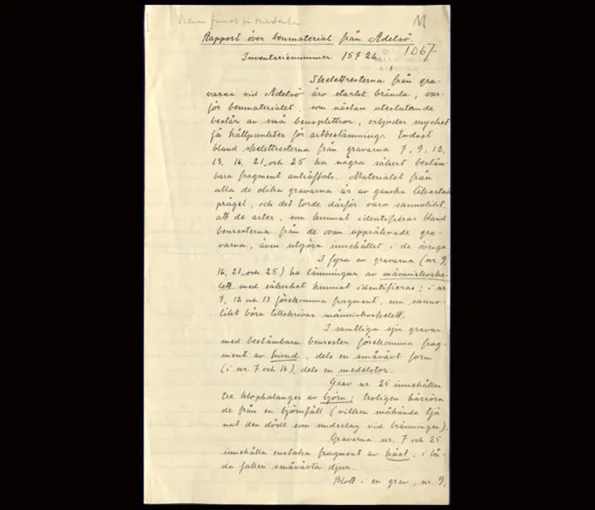 Rapport över benmaterial från Adelsö.
1067
Inventarienummer 15726
Skelettresterna från gra-
varna vid Adelsö äro starkt brända, var-
för benmaterialet, som nästan uteslutande
består av små bensplittror, erbjuder mycket
få hållpunkter för artbestämning. Endast
bland skelettresterna från gravarna 7, 9, 12,
13, 16, 21 och 25 ha några säkert bestäm-
bara fragment anträffats. Materialet från
alla de olika gravarna är av ganska likartad
prägel, och det torde därför vara sannolikt,
att de arter, som kunnat identifieras bland
benresterna från de ovan uppräknade gra-
varna, även utgöra innehållet i de övriga.
I fyra av gravarna (nr. 9,
16, 21 och 25) ha lämningar av människoske-
lett med säkerhet kunnat identifieras; i nr
7, 12 och 13 förekomma fragment, som sanno-
likt böra tillskrivas människoskelett.
I samtliga sju gravar
med bestämbara benrester förekomma frag-
ment av hund, dels en småväxt form
(i nr. 7 och 16), dels en medelstor.
Grav nr. 25 innehåller
tre klophalanger av björn; troligen härröra
de från en björnfäll (vilken måhända tjä-
nat den döde som underlag vid bränningen).
Gravarna nr. 7 och 25
innehålla enstaka fragment av häst, i bå-
da fallen småväxta djur.
Blott i en grav, nr. 9,